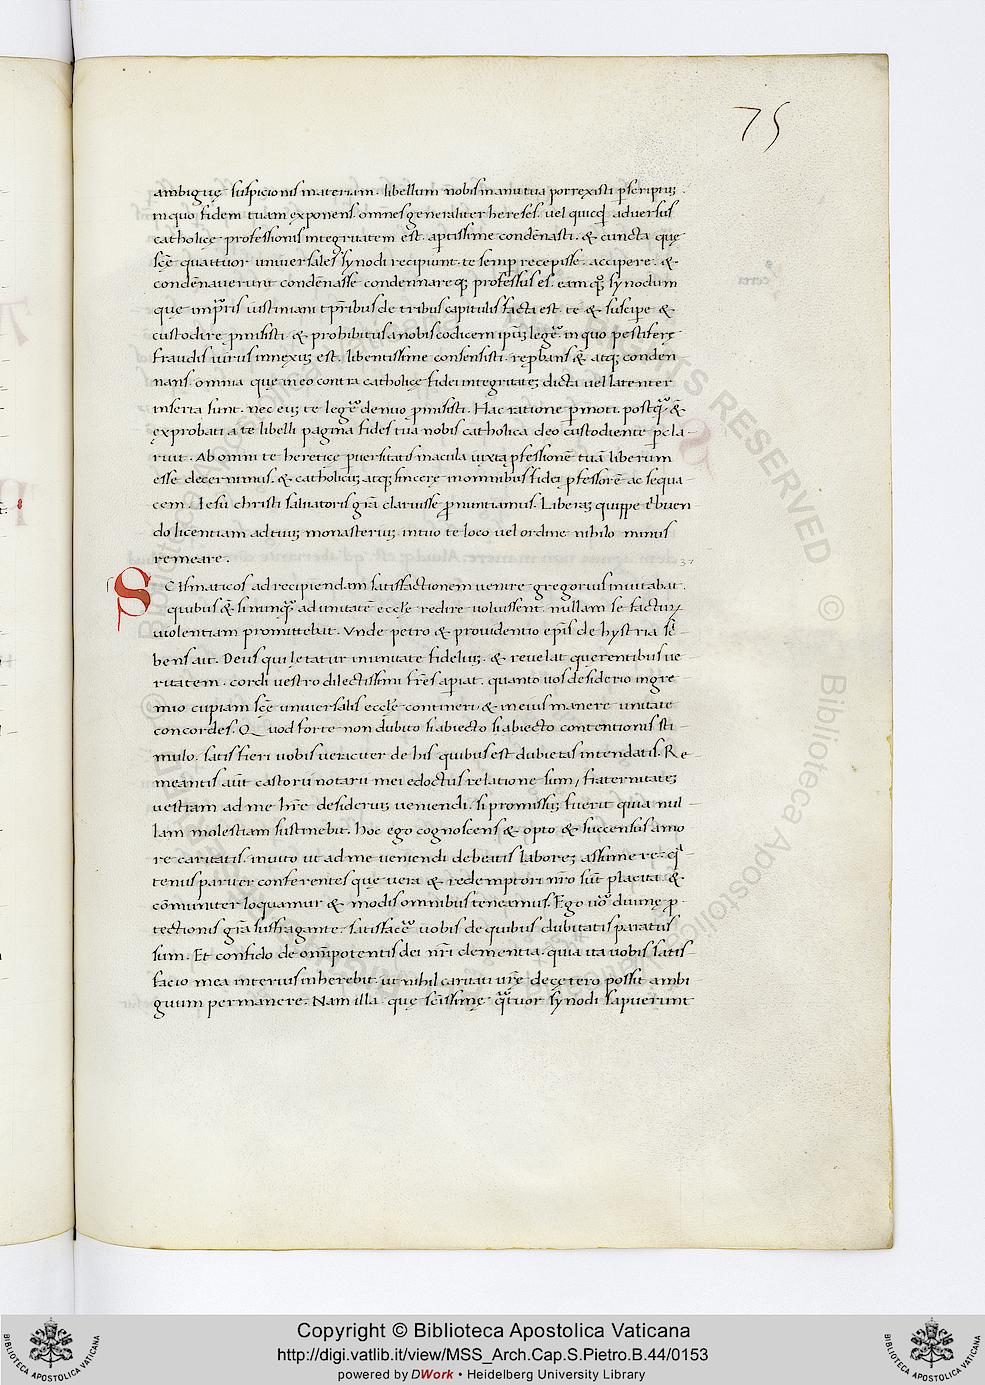 75
ambiguę suspicionis materiam. libellum nobis manu tua porrexisti pscriptũ.
in quo fidem tuam exponens. omnes generaliter hereses. vel quicqd adversus
catholicę professionis integritatem est. aptissime condẽnasti. & cuncta quę
scẽ quattuor universales synodi recipiunt. te semp recepisse. accipere. &
condẽnaverunt condẽnasse condemnareq; professus es. eam q; synodum
que temporis iustiniani de tribus capitulis facta est. te & suscipe &
custodire pmisisti. & prohibitus a nobis codicem ipsũ legere in quo pestiferę
fraudis virus innexũ est. libentissime consensisti. repbans & atq; conden
nans. omnia que in eo contra catholicę fidei integritatẽ dicta vel latenter
inserta sunt. nec eũ te legere denuo pmisisti. Hac ratione pmoti. postq &
exprobati a te libelli pagina fides tua nobis catholica deo custodiente pcla
ruit. Ab omni te heretice pversitatis macula iuxta pfessionẽ tuã liberum
esse decernimus. & catholicũ atq; sincerę in omnibus fidei pfessorẽ ac sequa
cem. Iesu christi salvatoris grã claruisse pnuntiamus. Liberã quippe tribuen
do licentiam ad tuũ monasteriũ in tuo te loco vel ordine nihilo minus
remeare.
37
SCismaticos ad recipiendam satisfactionem venire gregorius invitabat.
quibus & si nunq ad unitatẽ ecclẽ redire voluissent. nullam se facturũ
violentiam promittebat. Unde petro & providentio epis de hystria scri
bens ait. Deus qui letatur in unitate fideliũ. & revelat querentibus ve
ritatem. cordi vestro dilectissimi frẽs apiat. quanto vos desiderio in gre
mio cupiam scẽ universalis ecclẽ contineri & in eius manere unitate
concordes. Quod forte non dubito si abiecto si abiecto contentionis sti
mulo. satis fieri vobis veraciter de his quibus est dubietas intendatis. Re
meantis aut castorii notarii mei edoctus relatione sum, fraternitatẽ
vestram ad me hrẽ desideriũ veniendi. si promissũ fuerit quia nul
lam molestiam sustinebit. Hoc ego cognoscens & opto & succensus amo
re caritatis. invito ut ad me veniendi debeatis laborẽ assumere. q
tenus pariter conferentes que vera & redemptori nrõ sunt placita. &
cõmuniter loquamur & modis omnibus teneamus. Ego vo divine p
tectionis grã suffragante. satisface vobis de quibus dubitatis paratus
sum. Et confido de omipotentis dei nri clementia. quia ita vobis satis
facio mea interius inherebit. ut nihil caritati vrẽ deçetero possit ambi
guum permanere. Nam illa que scissime qttuor synodi sapuerunt
© Biblioteca Apostolica Vaticana
Copyright © Biblioteca Apostolica Vaticana
http://digi.vatlib.it/view/MSS_Arch.Cap.S.Pietro.B.44/0153
powered by DWork • Heidelberg University Library